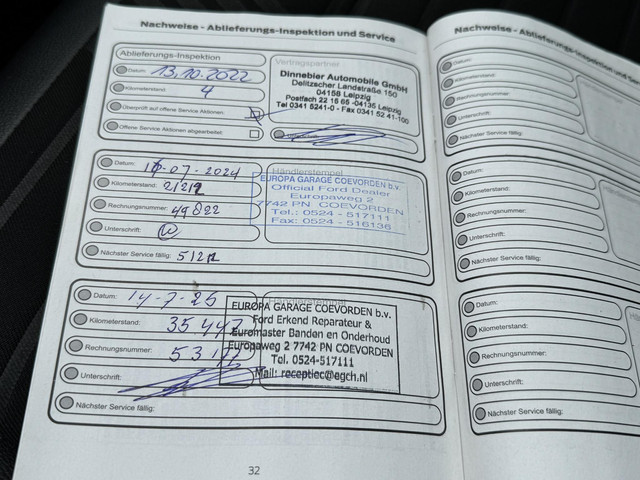 Nachweise - Ablieferungs-Inspektion und Service
Ablieferungs-Inspektion
Datum: 13.10.2022
Kilometerstand: 4
Überprüft auf offene Service Aktionen:
Offene Service Aktionen abgearbeitet:
Vertragspartner
Dinnebier Automobile GmbH
Delitzscher Landstraße 150
04158 Leipzig
Postfach 22 16 65 - 04136 Leipzig
Tel 0341 5241-0 - Fax 0341 52 41-100
Datum: -07-2024
Kilometerstand:
Rechnungsnummer: 49822
Unterschrift:
Nächster Service fällig:
Händlerstempel
EUROPA GARAGE COEVORDEN b.v.
Official Ford Dealer
Europaweg 2
7742 PN COEVORDEN
Tel.: 0524 - 517111
Fax: 0524 - 516136
Datum: 14-7-25
Kilometerstand: 35
Rechnungsnummer: 53
Unterschrift:
Nächster Service fällig:
Händlerstempel
EUROPA GARAGE COEVORDEN b.v.
Ford Erkend Reparateur &
Euromaster Banden en Onderhoud
Europaweg 2 7742 PN COEVORDEN
Tel. 0524-517111
Mail: receptie@egch.nl
32
Nachweise - Ablieferungs-Inspektion und
Datum:
Kilometerstand:
Rechnungsnummer:
Unterschrift:
Nächster Service fällig:
Datum:
Kilometerstand:
Rechnungsnummer:
Unterschrift:
Nächster Service fällig:
Datum:
Kilometerstand:
Rechnungsnummer:
Unterschrift:
Nächster Service fällig: